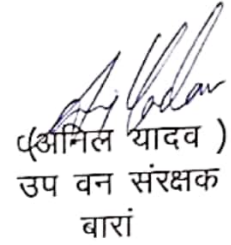 (अनिल यादव )
उप वन संरक्षक
बारां